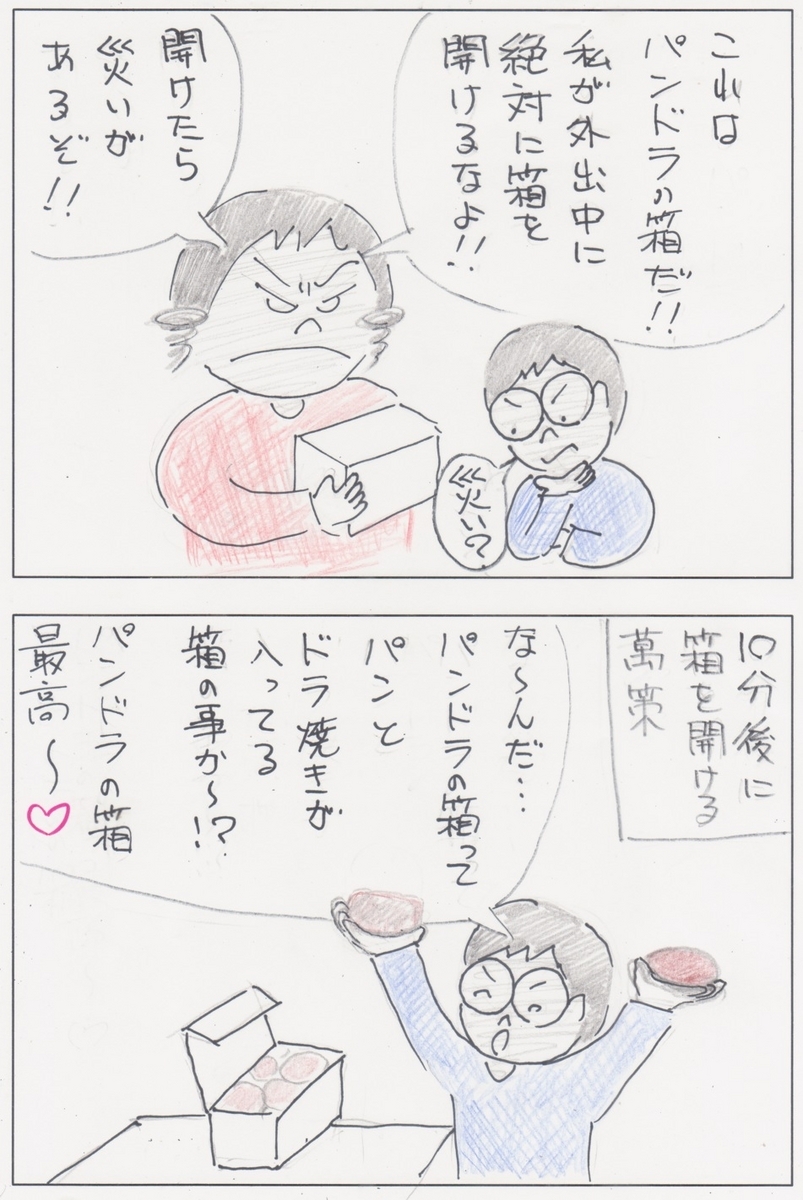 これは
パンドラの箱だ!!
私が外出中に
絶対に箱を
開けるなよ!!
開けたら
災いが
あるぞ!!
災い?
10分後に
箱を開ける
萬策
な〜んだ…
パンドラの箱って
パンと
ドラ焼きが
入ってる
箱の事か〜!?
パンドラの箱
最高〜♡